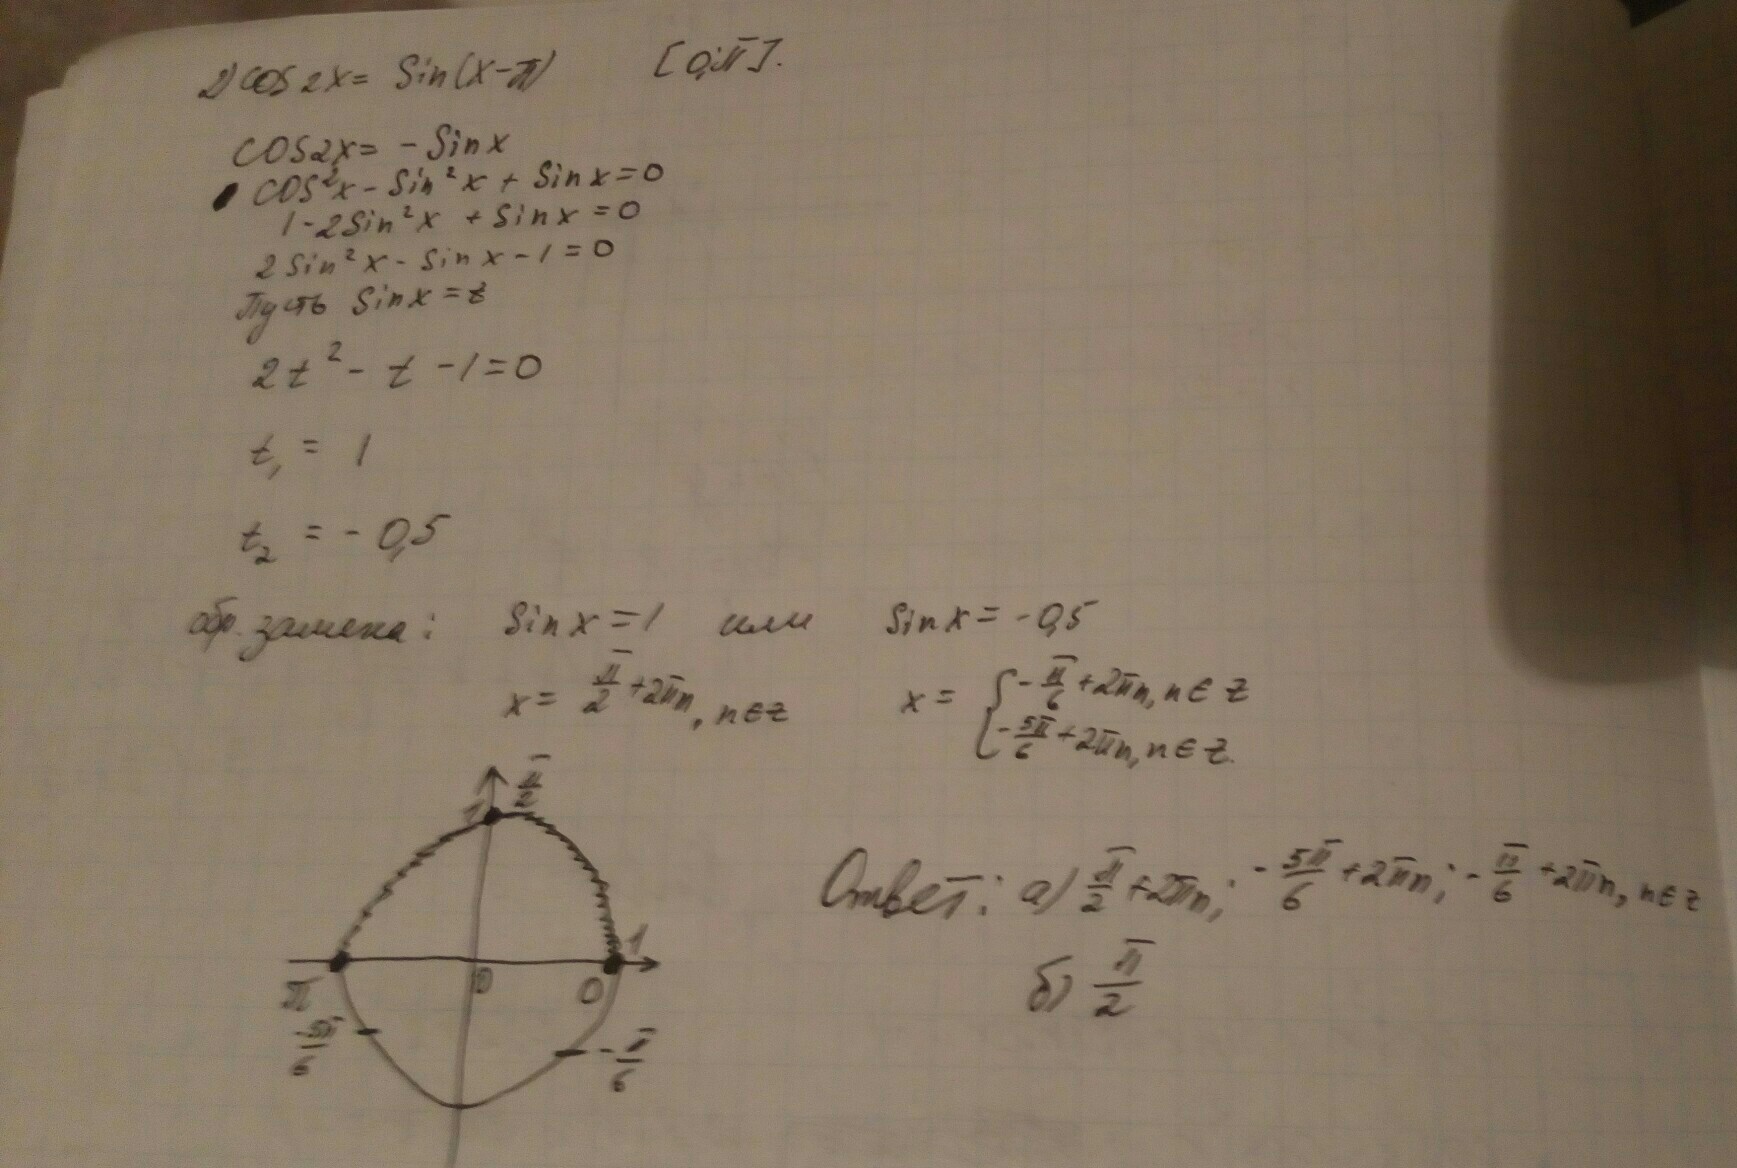 2) cos2x = Sin(x-π) [0;π].
cos2x = - Sinx
cos²x - Sin²x + Sinx = 0
1 - 2Sin²x + Sinx = 0
2Sin²x - Sinx - 1 = 0
Пусть Sinx = t
2t² - t - 1 = 0
t₁ = 1
t₂ = - 0,5
обр. замена: Sinx = 1 или Sinx = -0,5
x = π/2 + 2πn, n∈z x = { -π/6 + 2πn, n∈z
-5π/6 + 2πn, n∈z.
1 π/2
Ответ: а) π/2 + 2πn; -5π/6 + 2πn; -π/6 + 2πn, n∈z
б) π/2
1
π 0 0
-5π/6 -π/6